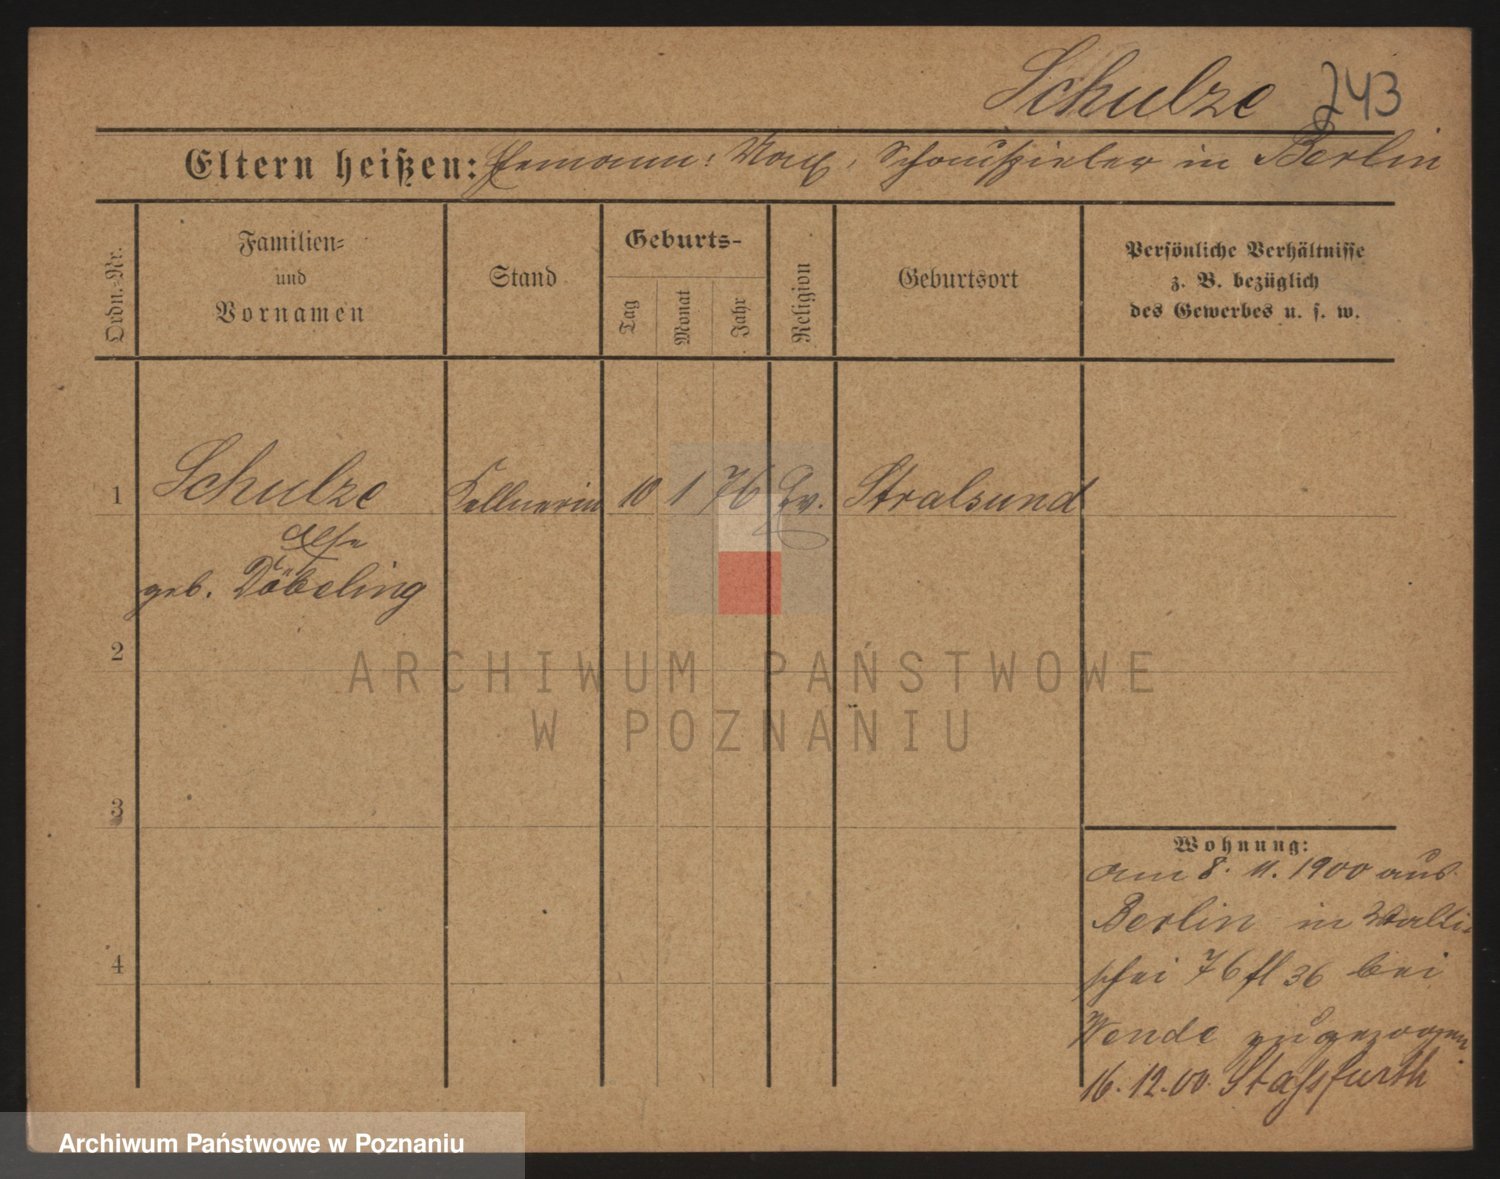 Schulze 243
Eltern heißen: Ehemann: Max, Schauspieler in Berlin
Ordn.-Nr.
Familien-
und
Vornamen
Stand
Geburts-
Tag
Monat
Jahr
Religion
Geburtsort
Persönliche Verhältnisse
z. B. bezüglich
des Gewerbes u. s. w.
1 Schulze Kellnerin 10 1 76 Ev. Stralsund
geb. Döbeling
2
3
4
Wohnung:
am 8. 11. 1900 aus
Berlin in Walli-
schei 76 fl 36 bei
Wende zugezogen
16.12.00. Staßfurth
ARCHIWUM PAŃSTWOWE
W POZNANIU
Archiwum Państwowe w Poznaniu